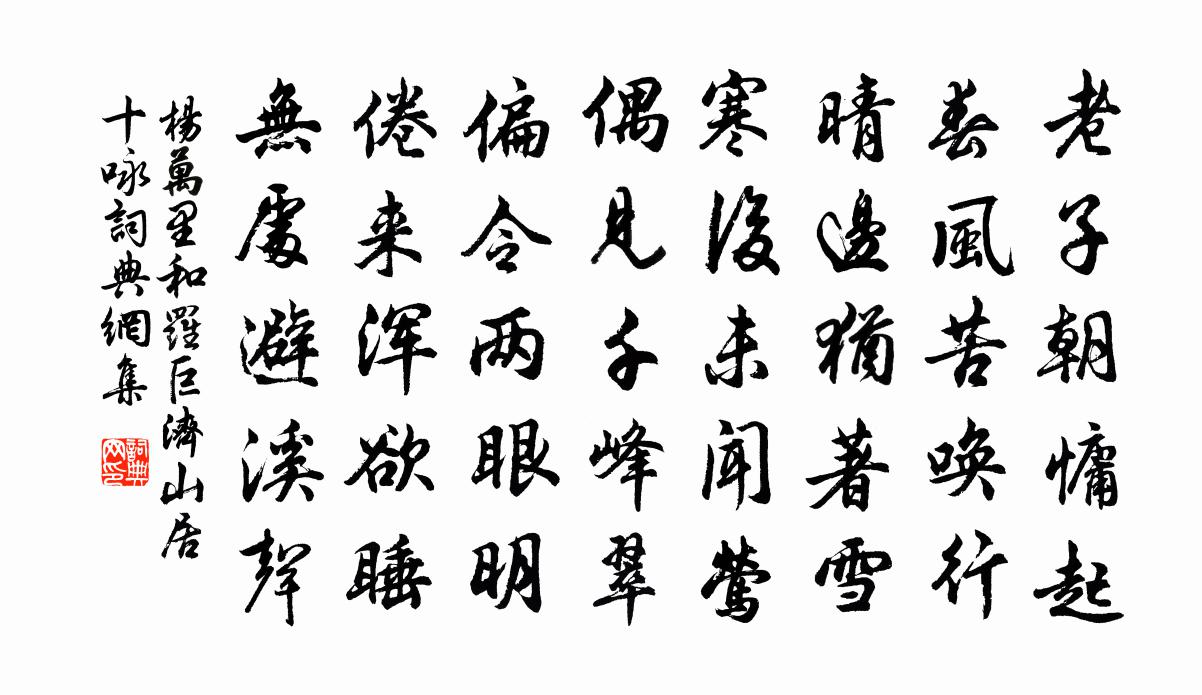 老子朝慵起
春風苦唤行
晴邊猶著雪
寒後未聞鶯
偶見千峰翠
偏令两眼明
倦来浑欲睡
無處避溪聲
楊萬里和羅巨濟山居
十咏詞典網集
詞典网印